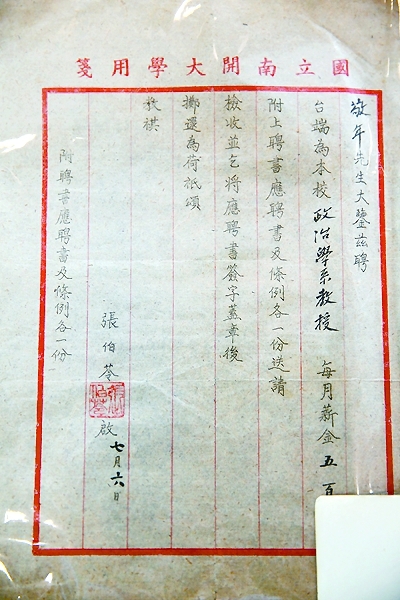 國立南開大學用箋
敬年先生大鑒茲聘
台端為本校政治學系教授 每月薪金五百
附上聘書應聘書及條例各一份送請
檢收並乞將應聘書簽字蓋章後
擲還為荷祇頌
教祺
張伯苓 啟 七月六日
附聘書應聘書及條例各一份